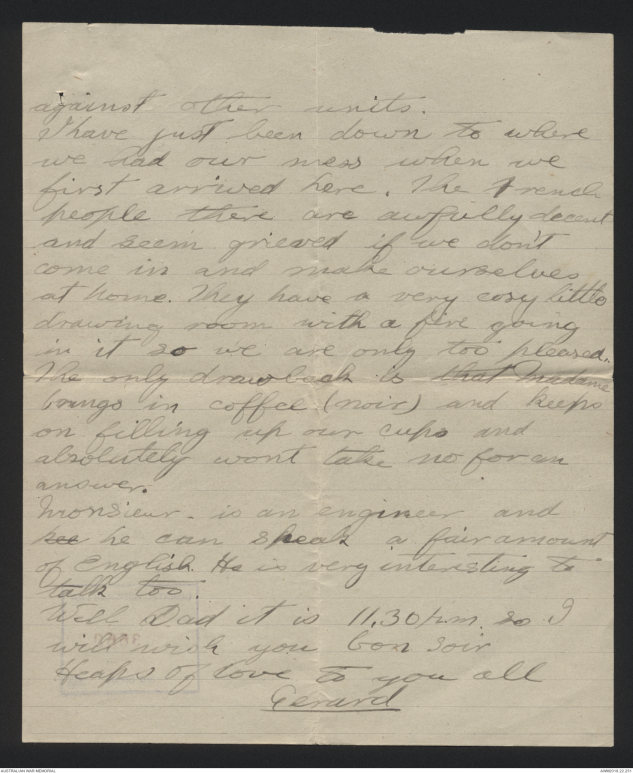 against other units.
I have just been down to where
we had our mess when we
first arrived here. The French
people there are awfully decent
and seem grieved if we don't
come in and make ourselves
at home. They have a very cosy little
drawing room with a fire going
in it so we are only too pleased.
The only drawback is that Madame
brings in coffee (noir) and keeps
on filling up our cups and
absolutely wont take no for an
answer.
Monsieur is an engineer and
see he can speak a fair amount
of English. He is very interesting to
talk too.
Well Dad it is 11.30 p.m. so I
will wish you bon soir
Heaps of love to you all
Gerard
AUSTRALIAN WAR MEMORIAL